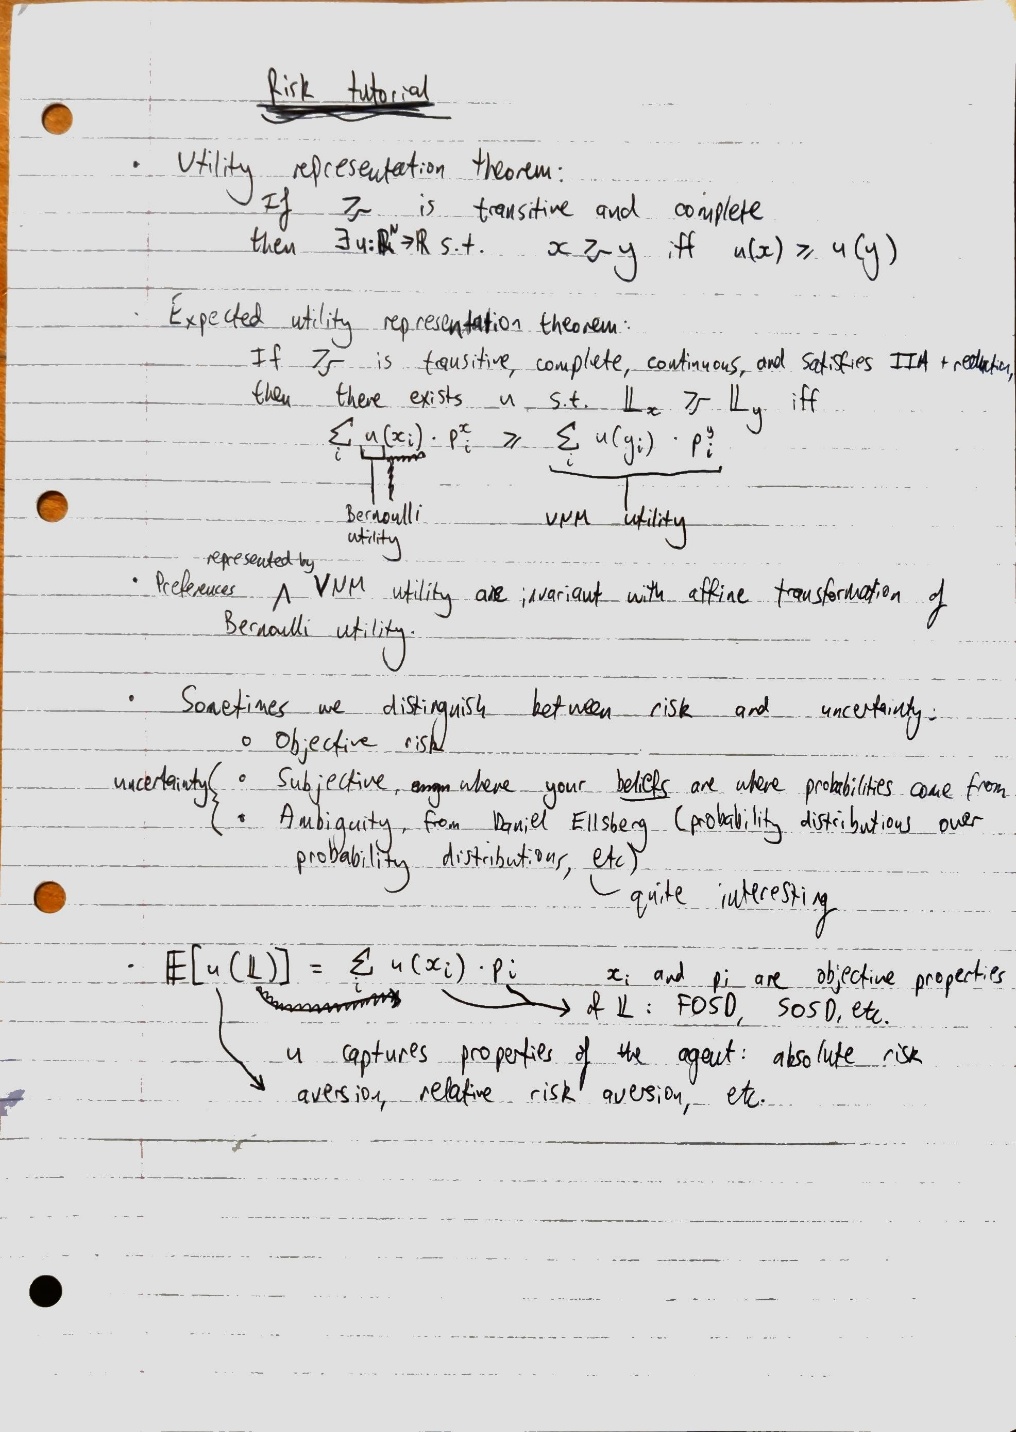 Risk tutorial
• Utility representation theorem:
If ≿ is transitive and complete
then ∃u:ℝᴺ→ℝ s.t. x ≿ y iff u(x) ⩾ u(y)
· Expected utility representation theorem:
If ≿ is transitive, complete, continuous, and satisfies IIA + reduction,
then there exists u s.t. 𝕃ₓ ≿ 𝕃_y iff
∑ᵢ u(xᵢ) · pᵢˣ ⩾ ∑ᵢ u(yᵢ) · pᵢʸ
Bernoulli utility
VNM utility
• Preferences represented by VNM utility are invariant with affine transformation of
Bernoulli utility.
• Sometimes we distinguish between risk and uncertainty:
o Objective risk
uncertainty { o Subjective, where your beliefs are where probabilities come from
• Ambiguity, from Daniel Ellsberg (probability distributions over
probability distributions, etc)
quite interesting
· 𝔼[u(𝕃)] = ∑ᵢ u(xᵢ) · pᵢ xᵢ and pᵢ are objective properties
of 𝕃 : FOSD, SOSD, etc.
u captures properties of the agent: absolute risk
aversion, relative risk aversion, etc.